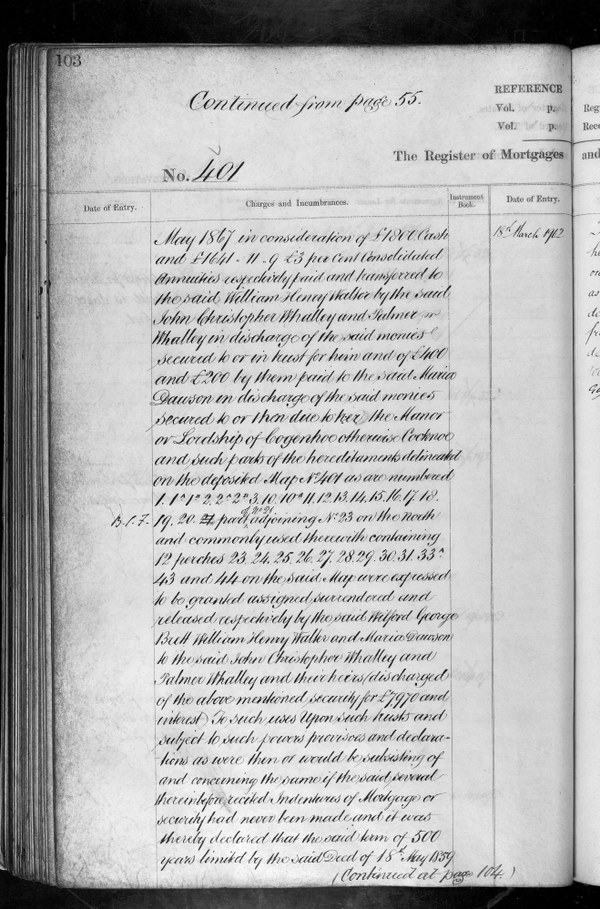 103
Continued from page 55.
REFERENCE
Vol. p.
Vol. p.
The Register of Mortgages
No. 401
Date of Entry.
Charges and Incumbrances.
Instrument Book.
Date of Entry.
18th March 1902
May 1867 in consideration of £1800 Cash
and £1641-11-9 £3 per Cent Consolidated
Annuities respectively paid and transferred to
the said William Henry Walter by the said
John Christopher Whalley and Palmer
Whalley in discharge of the said monies
secured to or in trust for him and of £400
and £200 by them paid to the said Maria
Dawson in discharge of the said monies
secured to or then due to her, the Manor
or Lordship of Cogenhoe otherwise Cooknoe
and such parts of the hereditaments delineated
on the deposited Map No 401 as are numbered
1. 1a 1b 2. 2a 2b 3. 10. 10a 11. 12. 13. 14. 15. 16. 17. 18.
B.I.F.
19. 20. 21 part of No 21 adjoining No 23 on the north
and commonly used therewith containing
12 perches 23. 24. 25. 26. 27. 28. 29. 30. 31. 33a
43 and 44 on the said Map were expressed
to be granted assigned surrendered and
released respectively by the said Wilford George
Brett William Henry Walter and Maria Dawson
to the said John Christopher Whalley and
Palmer Whalley and their heirs (discharged
of the above mentioned security for £7970 and
interest) To such uses Upon such trusts and
subject to such powers provisoes and declara-
tions as were then or would be subsisting of
and concerning the same if the said several
thereinbefore recited Indentures of Mortgage or
security had never been made and it was
thereby declared that the said term of 500
years limited by the said Deed of 18th May 1859
(Continued at page 104.)
and